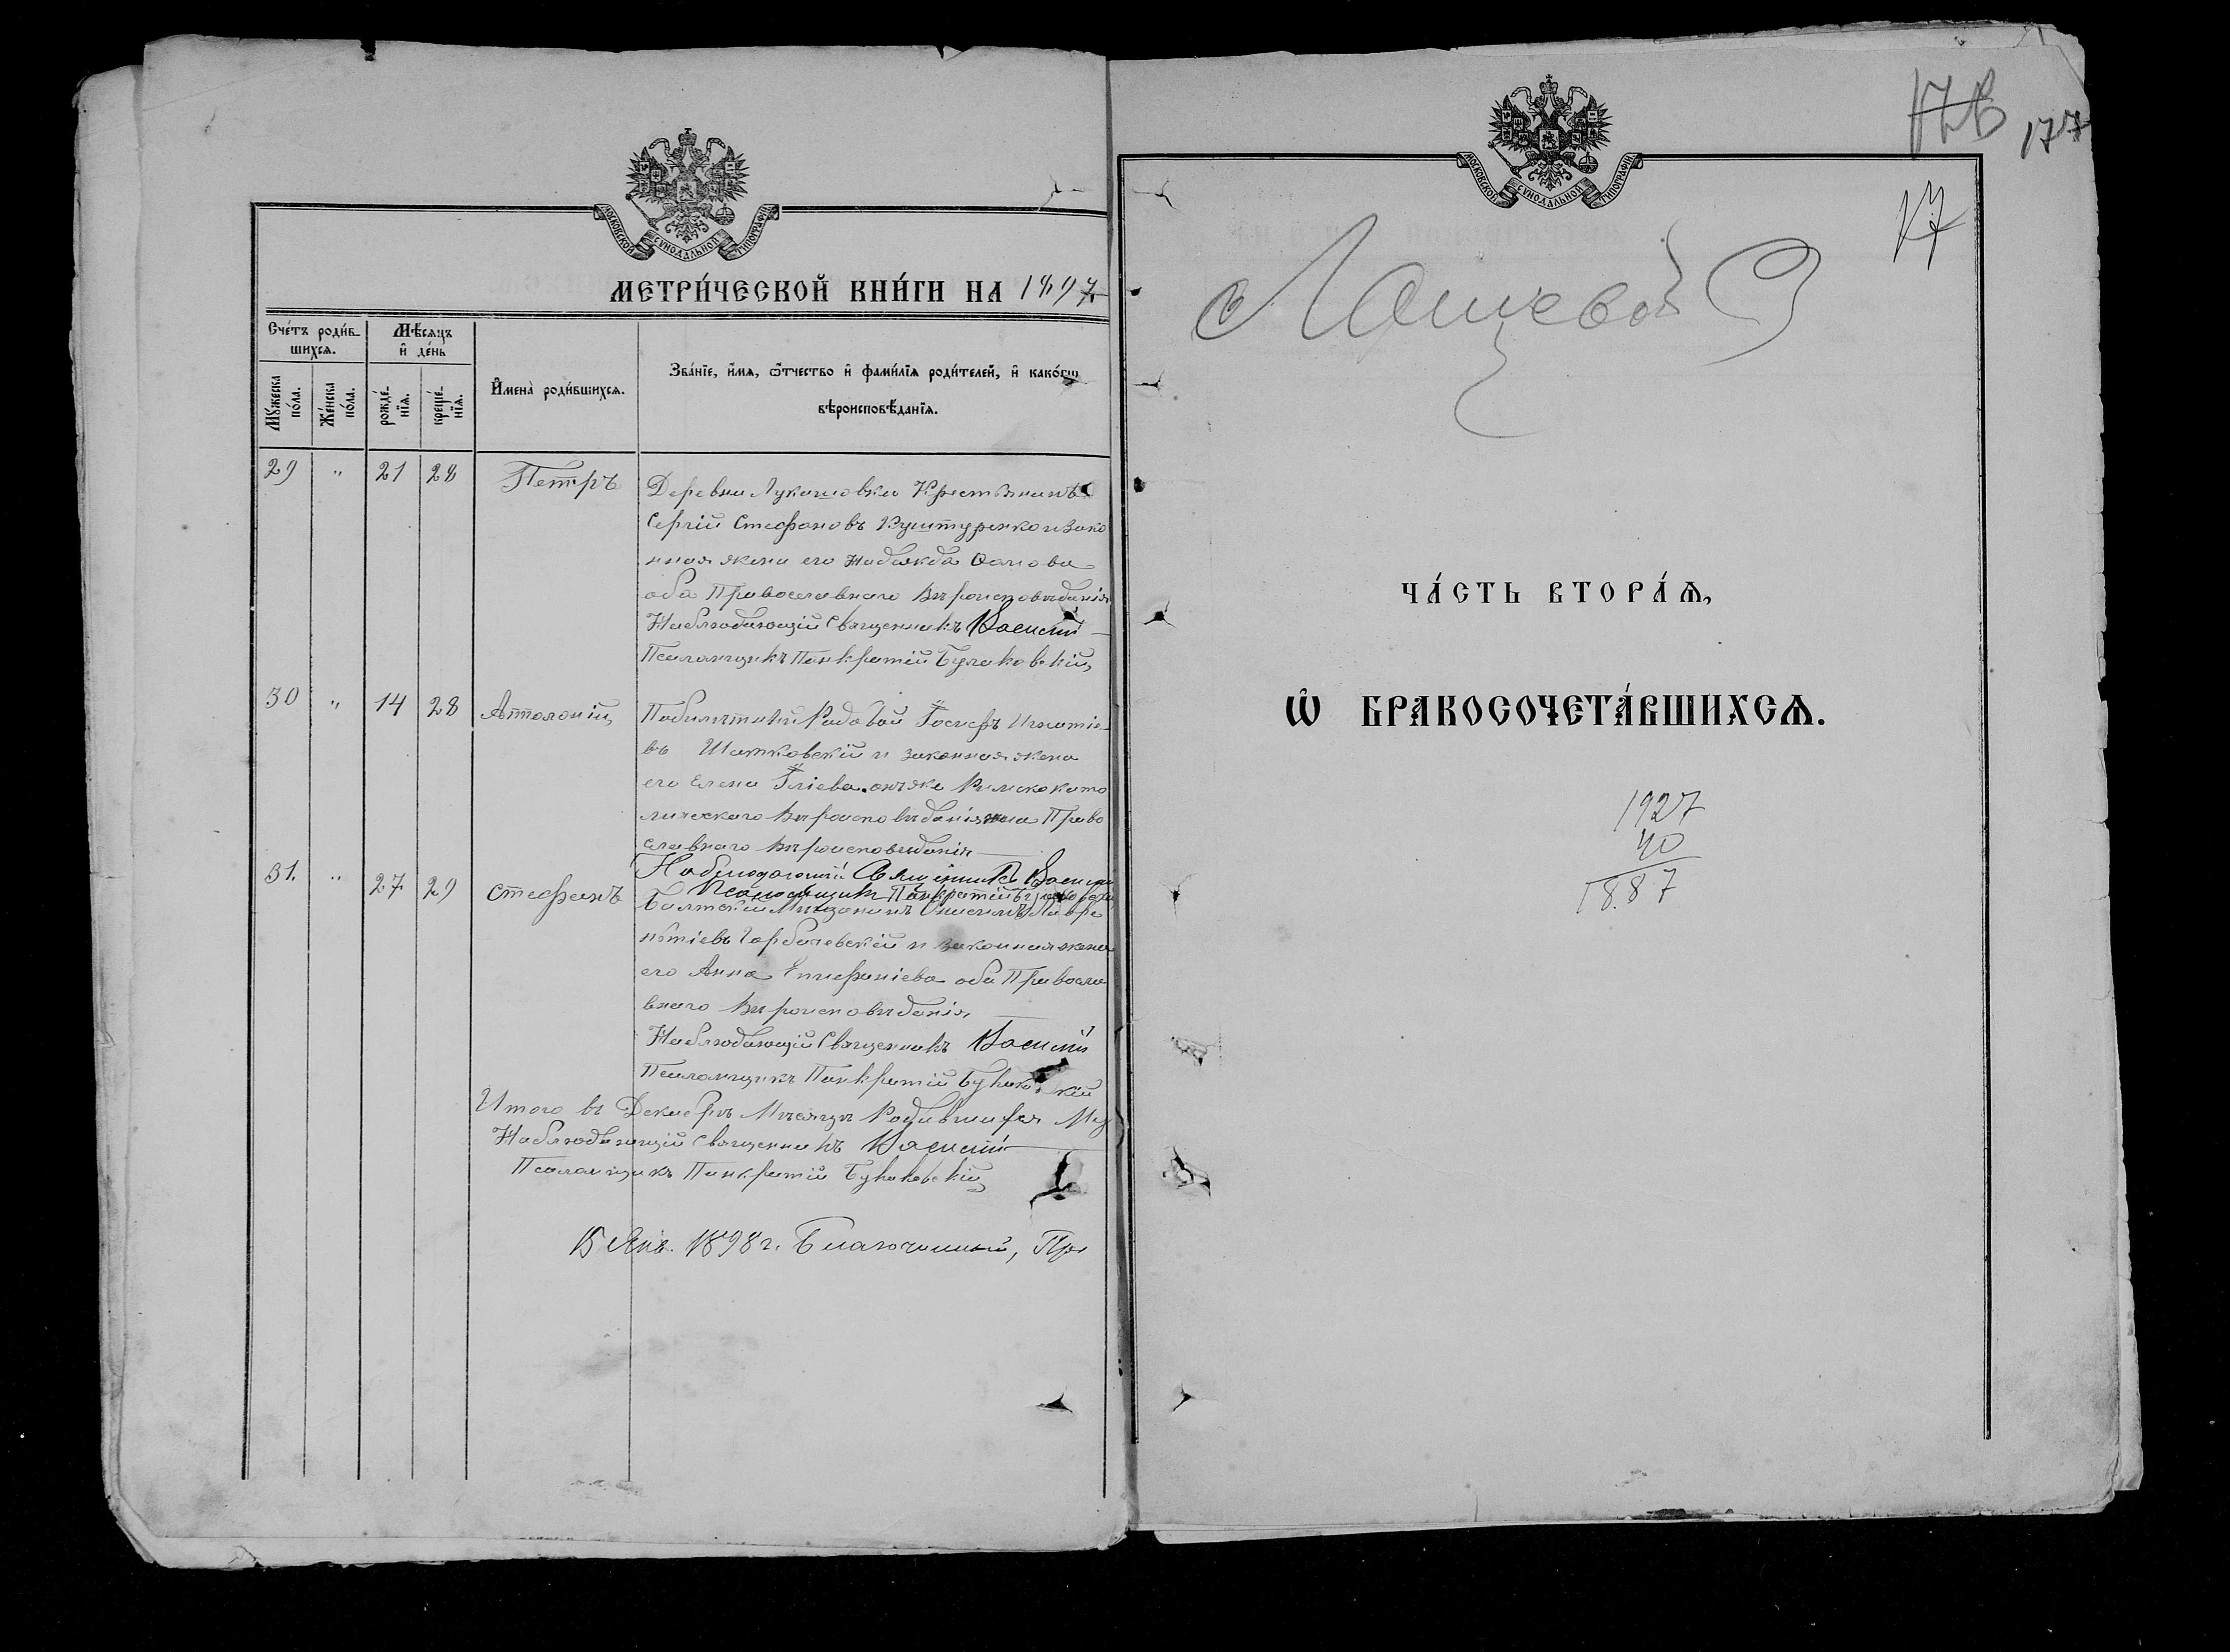 МОСКОВСКОЙ СУНОДАЛЬНОЙ ТИПОГРАФІИ
МЕТРИ́ЧЕСКОЙ КНИ́ГИ НА 1897
Сче́тъ роди́в-
шихсѧ.
Мѣ́сѧцъ
и҆ де́нь
Мꙋ́жеска
по́ла.
Же́нска
по́ла.
рожде́-
нїѧ.
креще́-
нїѧ.
И҆мена̀ роди́вшихсѧ.
Зва́нїе, и҆́мѧ, ѻ҆́тчество и҆ фами́лїѧ роди́телей, и҆ како́гѡ
вѣроисповѣ́данїѧ.
29 " 21 28 Петръ
Деревни Лукашовки Крестьянинъ
Сергій Стефановъ Куштуренко и Зако
нная жена его Надежда
оба Православнаго Вѣроисповѣданія
Наблюдающій Священникъ Василій
Псаломщикъ Панкратій
30 " 14 28 Антоній
Рядовой Іосифъ Игнатіе
въ Шатковскій и законная жена
его Елена онъ же Римскокато
лическаго Вѣроисповѣданія она Право
славнаго Вѣроисповѣданія
Наблюдающій Священникъ Василій
Псаломщикъ Панкратій
31. " 27 29 Стефанъ
Балтскій Мѣщанинъ Лавре
нтіевъ Горбачевскій и законная жена
его Анна Епифаніева оба Правосла
внаго Вѣроисповѣданія
Наблюдающій Священникъ Василій
Псаломщикъ Панкратій
Итого въ Декабрѣ Мѣсяцѣ Родившихся Му
Наблюдающій Священникъ Василій
Псаломщикъ Панкратій
15 Янв. 1898 г. Благочинный, Пр
177
17
МОСКОВСКОЙ СУНОДАЛЬНОЙ ТИПОГРАФІИ
ЧА́СТЬ ВТОРА́Ѧ,
Ѡ҆ БРАКОСОЧЕТА́ВШИХСѦ.
1927
40
1887